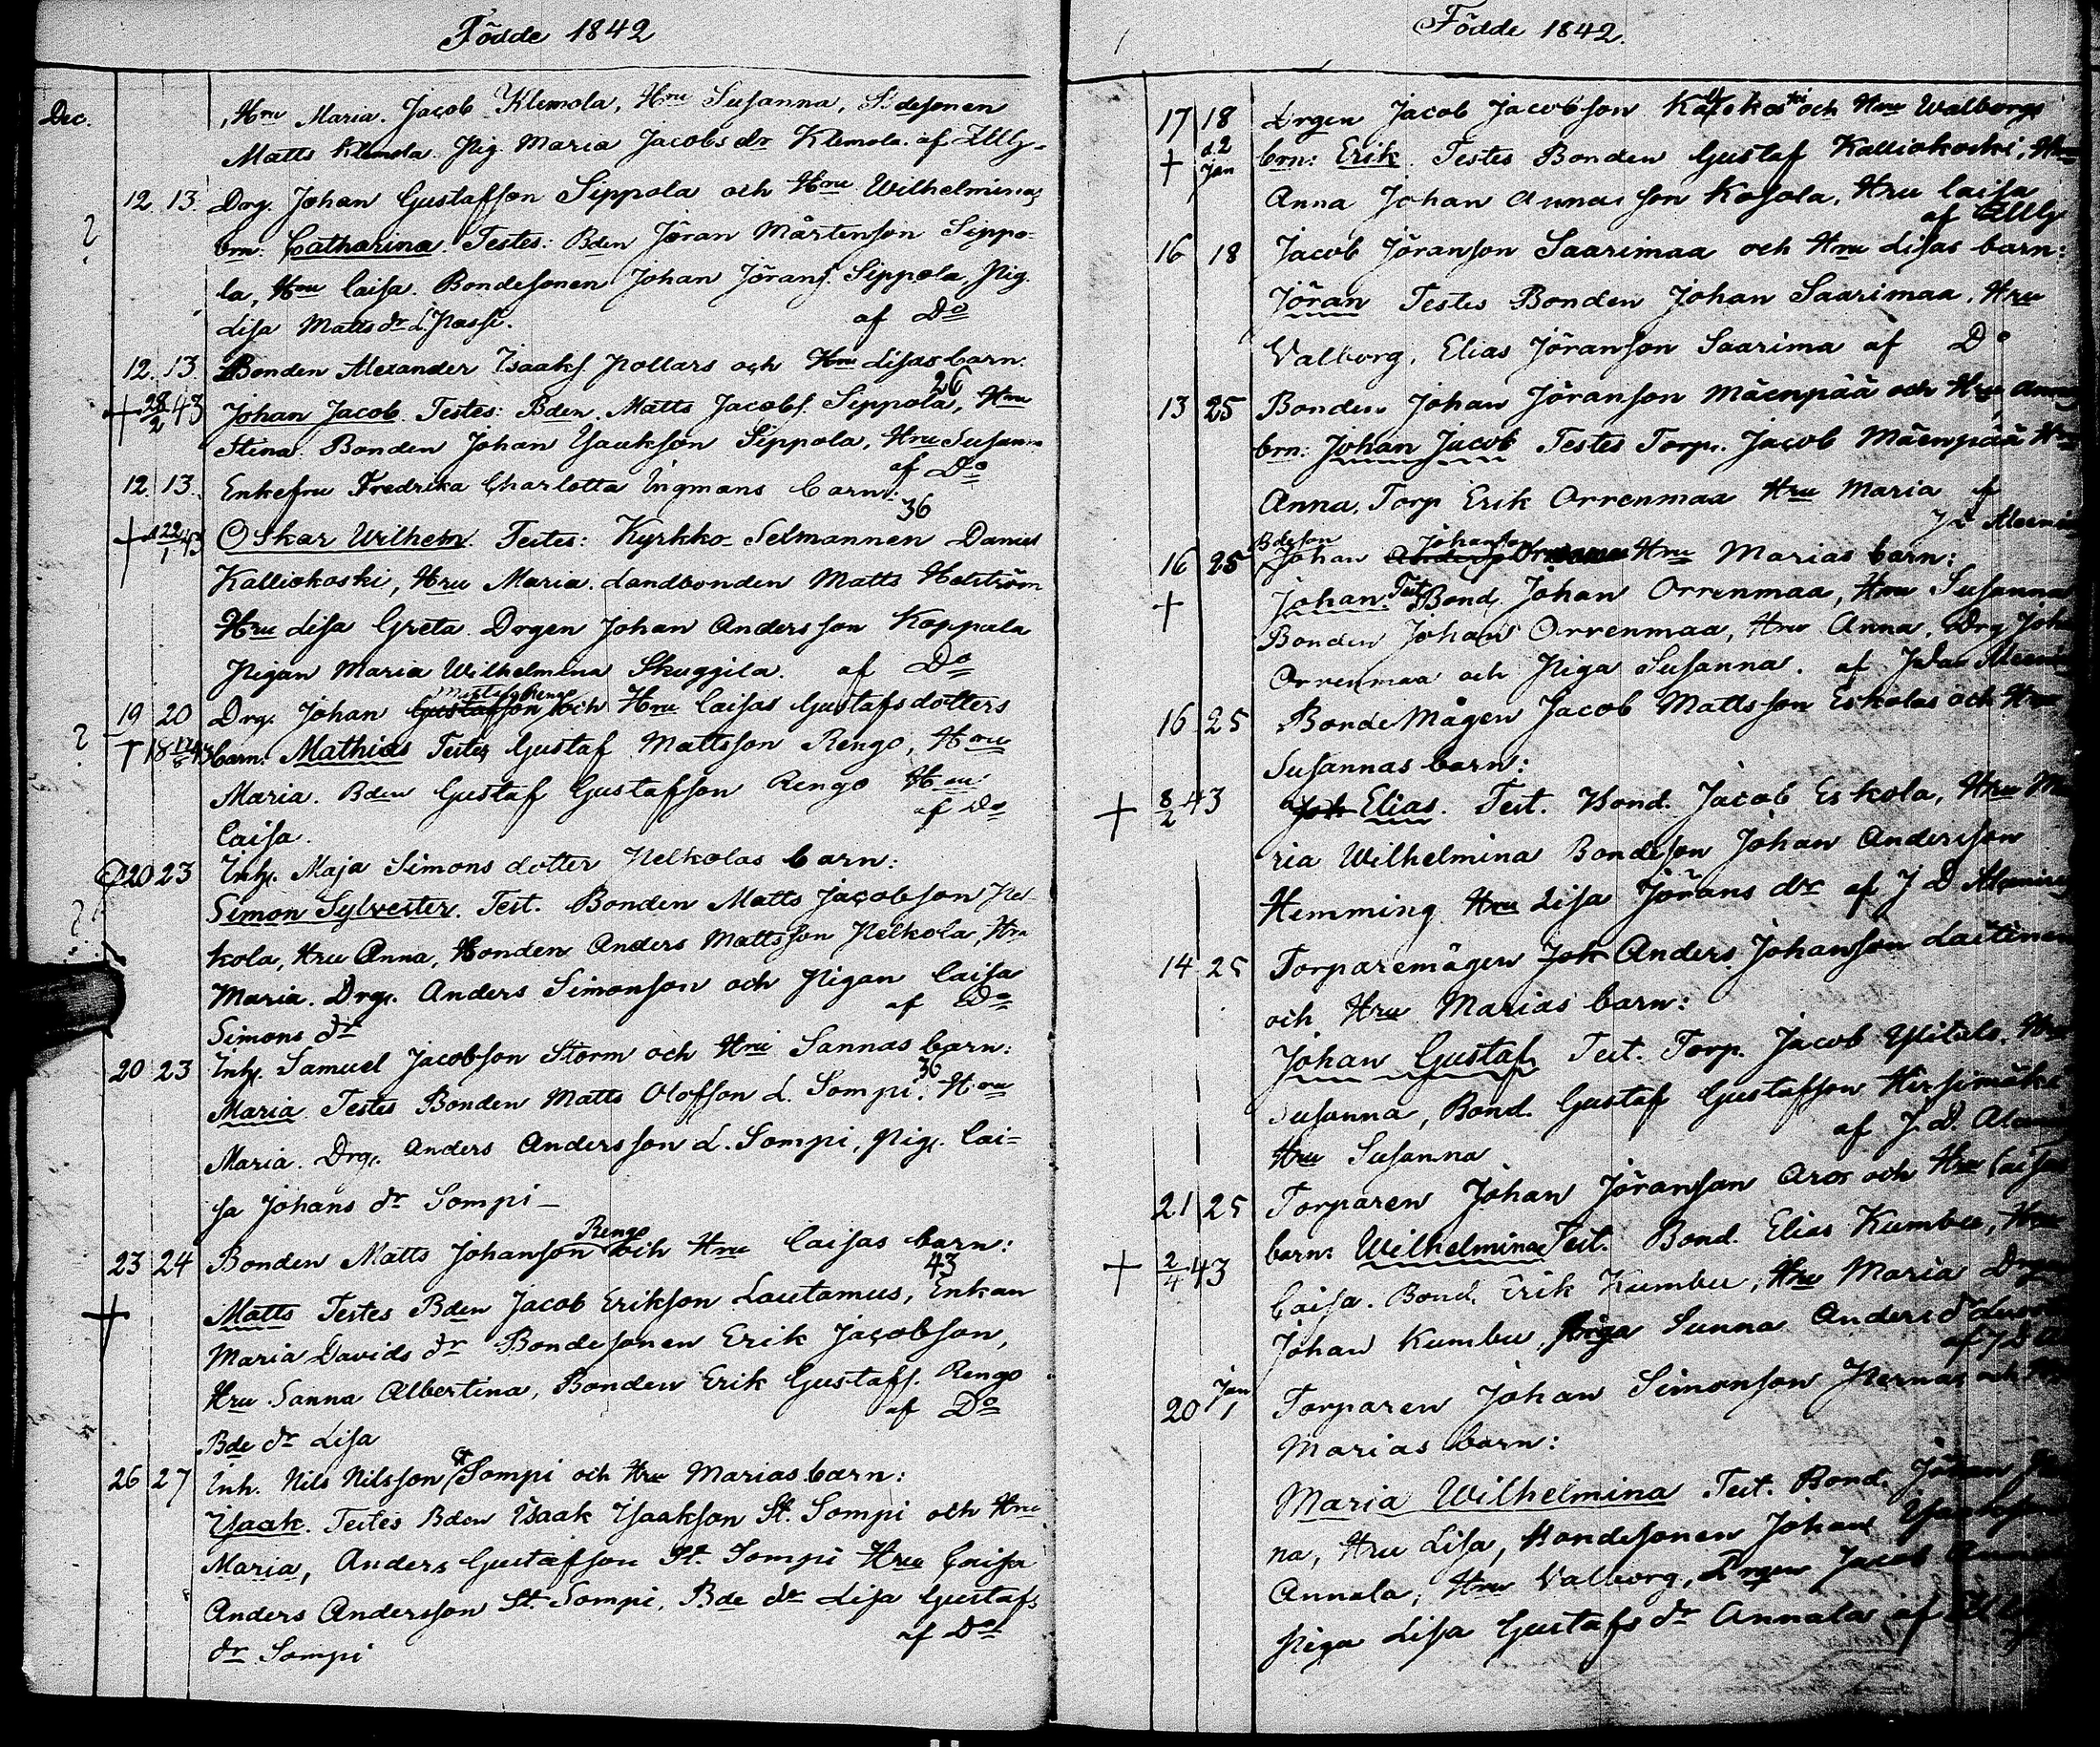 Födde 1842
Dec. Hru Maria. Jacob Klemola, Hru Susanna, Bdesonen
Matts Klemola. Pig. Maria Jacobs dr Klemola. af
12. 13. Drg. Johan Gustafsson Sippola och Hru Wilhelminas
? brn: Catharina. Testes: Bden Jöran Mårtenson Sippo-
la, Hru Caisa. Bondesonen Johan Jörans. Sippola. Pig.
Lisa Matts dr L. Passi. af Do
12. 13. Bonden Alexander Isaaks Pollars och Hru Lisas barn.
26
+ 28/2 43 Johan Jacob. Testes: Bden Matts Jacobs. Sippola, Hru
Stina. Bonden Johan Ysaakson Sippola, Hru Susanna
af Do
12. 13. Enkefru Fredrika Charlotta Ingmans barn:
36
+ 22/1 43 Oskar Wilhelm. Testes: Kyrkko Selmannen Daniel
Kalliokoski, Hru Maria. Landbonden Matts Holström
Hru Lisa Greta. Drgen Johan Andersson Koppala
Pigan Maria Wilhelmina Skuggila. af Do
19 20 Drg. Johan Gustafsson Rengo och Hru Caisas Gustafsdotters
? + barn: Mathias Testes Gustaf Mattsson Rengo, Hru
Maria. Bden Gustaf Gustafsson Rengo Hru
Caisa. af Do
20 23 Inh. Maja Simons dotter Nelkolas barn:
? Simon Sylvester. Test. Bonden Matts Jacobson Nel
kola, Hru Anna, Bonden Anders Mattsson Nelkola, Hru
Maria. Drg. Anders Simonson och Pigan Caisa
Simons dr af Do
20 23 Inh. Samuel Jacobson Storm och Hru Sannas barn:
36
Maria. Testes Bonden Matts Olofsson L. Sompi. Hru
Maria. Drg. Anders Andersson L. Sompi, Pig. Cai=
sa Johans dr Sompi
23 24 Bonden Matts Johanson Rengo och Hru Caisas barn:
43
+ Matts Testes Bden Jacob Erikson Lautamus, Enkan
Maria Davids dr Bondesonen Erik Jacobson,
Hru Sanna Albertina, Bonden Erik Gustafs. Rengo
Bde dr Lisa af Do
26 27 Inh. Nils Nilsson St Sompi och Hru Marias barn:
Ysaak. Testes Bden Isaak Ysaakson St. Sompi och Hru
Maria, Anders Gustafsson St. Sompi Hru Caisa
Anders Andersson St. Sompi, Bde dr Lisa Gustafs
dr Sompi af Do
Födde 1842.
17 18 Drgen Jacob Jacobson och Hru Walborgs
+ d.2 Jan brn: Erik. Testes Bonden Gustaf Kalliokoski, Hru
Anna Johan son Kosola, Hru Caisa
af
16 18 Jacob Jöranson Saarimaa och Hru Lisas barn:
Jöran Testes Bonden Johan Saarimaa, Hru
Valborg, Elias Jöranson Saarima af Do
13 25 Bonden Johan Jöranson Mäenpää och Hru
brn: Johan Jacob Testes Torp. Jacob Mäenpää Hru
Anna, Torp Erik Orrenmaa Hru Maria af
16 25 Bdeson Johan Johanson Hru Marias barn:
+ Johan. Test. Bond. Johan Orrenmaa, Hru Susanna
Bonden Johan Orrenmaa, Hru Anna. Drg
Orrenmaa och Piga Susanna. af
16 25 BondeMågen Jacob Mattsson Eskolas och Hru
Susannas barn:
+ 8/2 43 Joh Elias. Test. Bond. Jacob Eskola, Hru
ria Wilhelmina Bondeson Johan Andersson
Hemming Hru Lisa Jörans dr af J D
14 25 Torparemågen Joh Anders Johanson
och Hru Marias barn:
Johan Gustaf Test. Torp. Jacob Ylitalo. Hru
Susanna, Bond. Gustaf Gustafsson Hirsimäki
Hru Susanna af J. D.
21 25 Torparen Johan Jöranson Aros och Hru Caisas
+ 2/4 43 barn: Wilhelmina Test. Bond. Elias Kumbu, Hru
Caisa. Bond. Erik Kumbu, Hru Maria
Johan Kumbu, Piga Sanna Anders dr
20 Jan 1 Torparen Johan Simonson och
Marias barn:
Maria Wilhelmina Test. Bond. Jöran
na, Hru Lisa, Bondesonen Johan
Annala, Hru Valborg, Drgen Jacob
Piga Lisa Gustafs dr Annala af